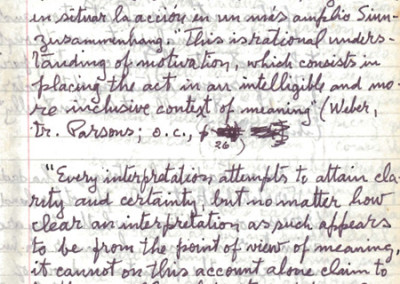 en situar la acción en un más amplio Sinn-
zusammenhang. "This is rational unders-
tanding of motivation, which consists in
placing the act in an intelligible and mo-
re inclusive context of meaning" (Weber,
Tr. Parsons; o.c., p
26)
"Every interpretation attempts to attain cla-
rity and certainty but no matter how
clear an interpretation as such appears
to be from the point of view of meaning,
it cannot on this account alone claim to